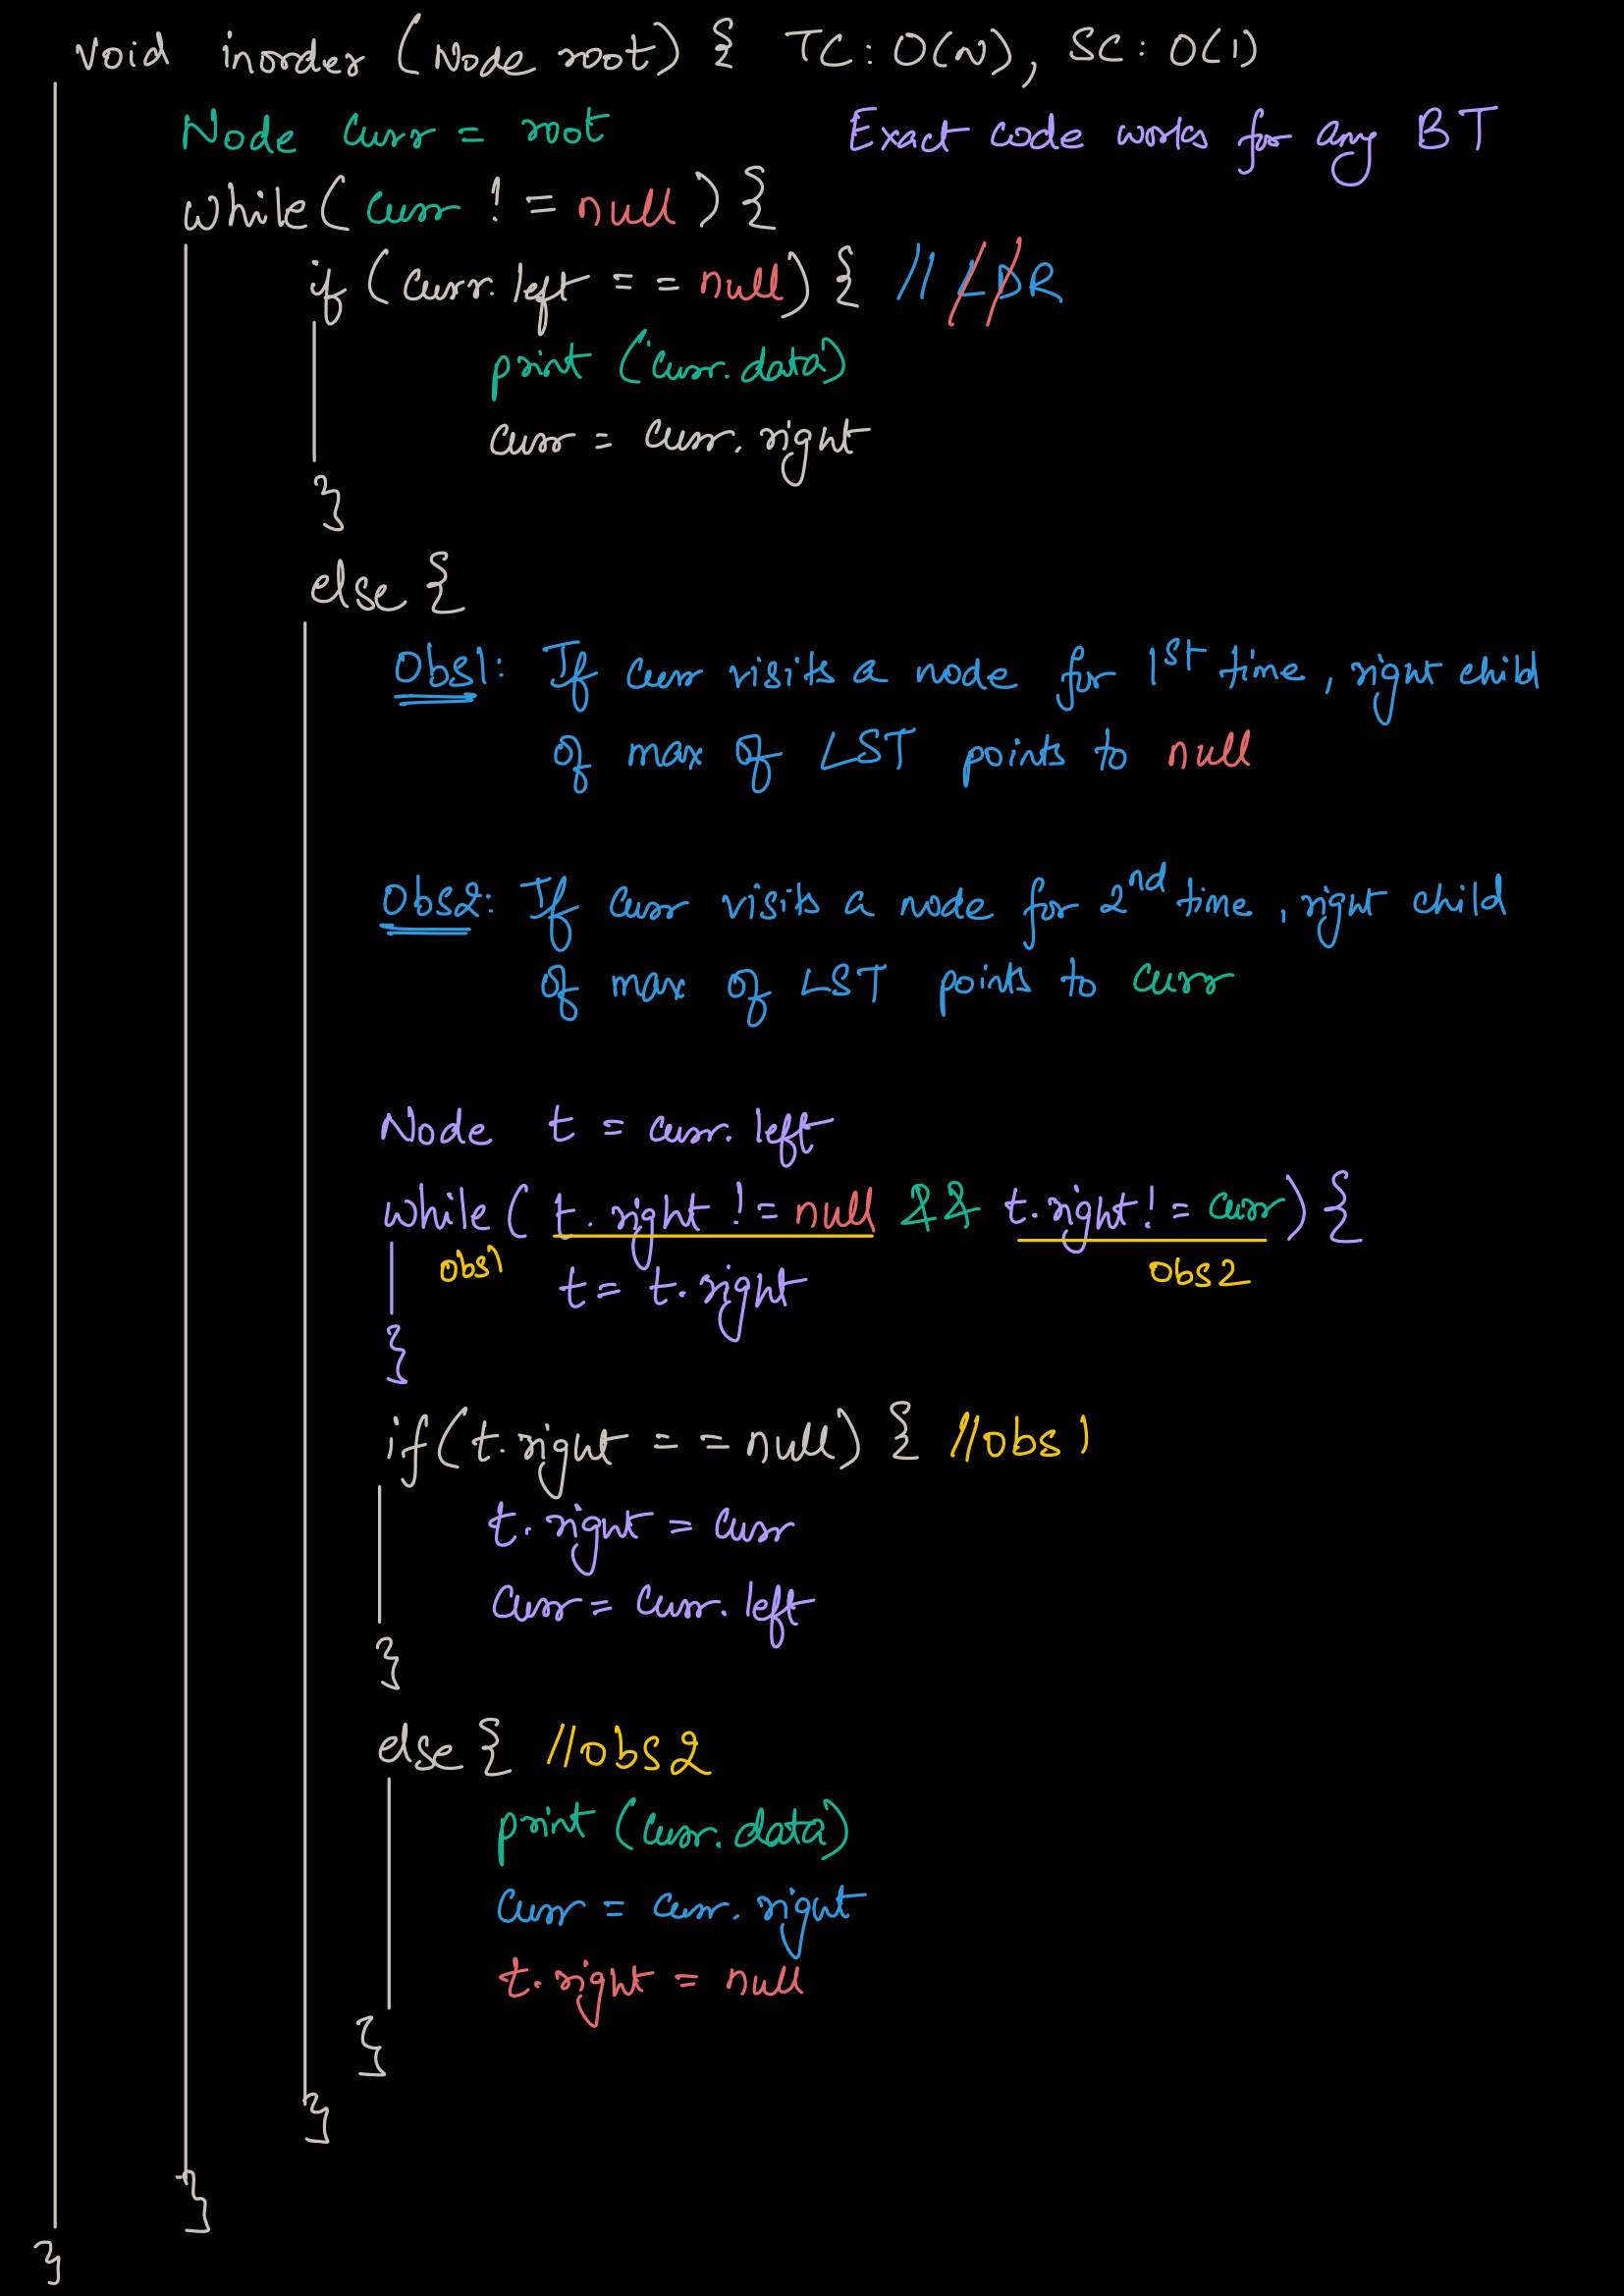 void inorder (Node root) { TC: O(N), SC: O(1)
Node curr = root Exact code works for any BT
while( curr != null ) {
if (curr.left == null) { // LDR
print (curr.data)
curr = curr.right
}
else {
Obs1: If curr visits a node for 1st time, right child
of max of LST points to null
Obs2: If curr visits a node for 2nd time, right child
of max of LST points to curr
Node t = curr.left
while ( t.right != null && t.right != curr) {
obs1 obs2
t = t.right
}
if(t.right == null) { //obs1
t.right = curr
curr = curr.left
}
else { //obs2
print (curr.data)
curr = curr.right
t.right = null
}
}
}
}